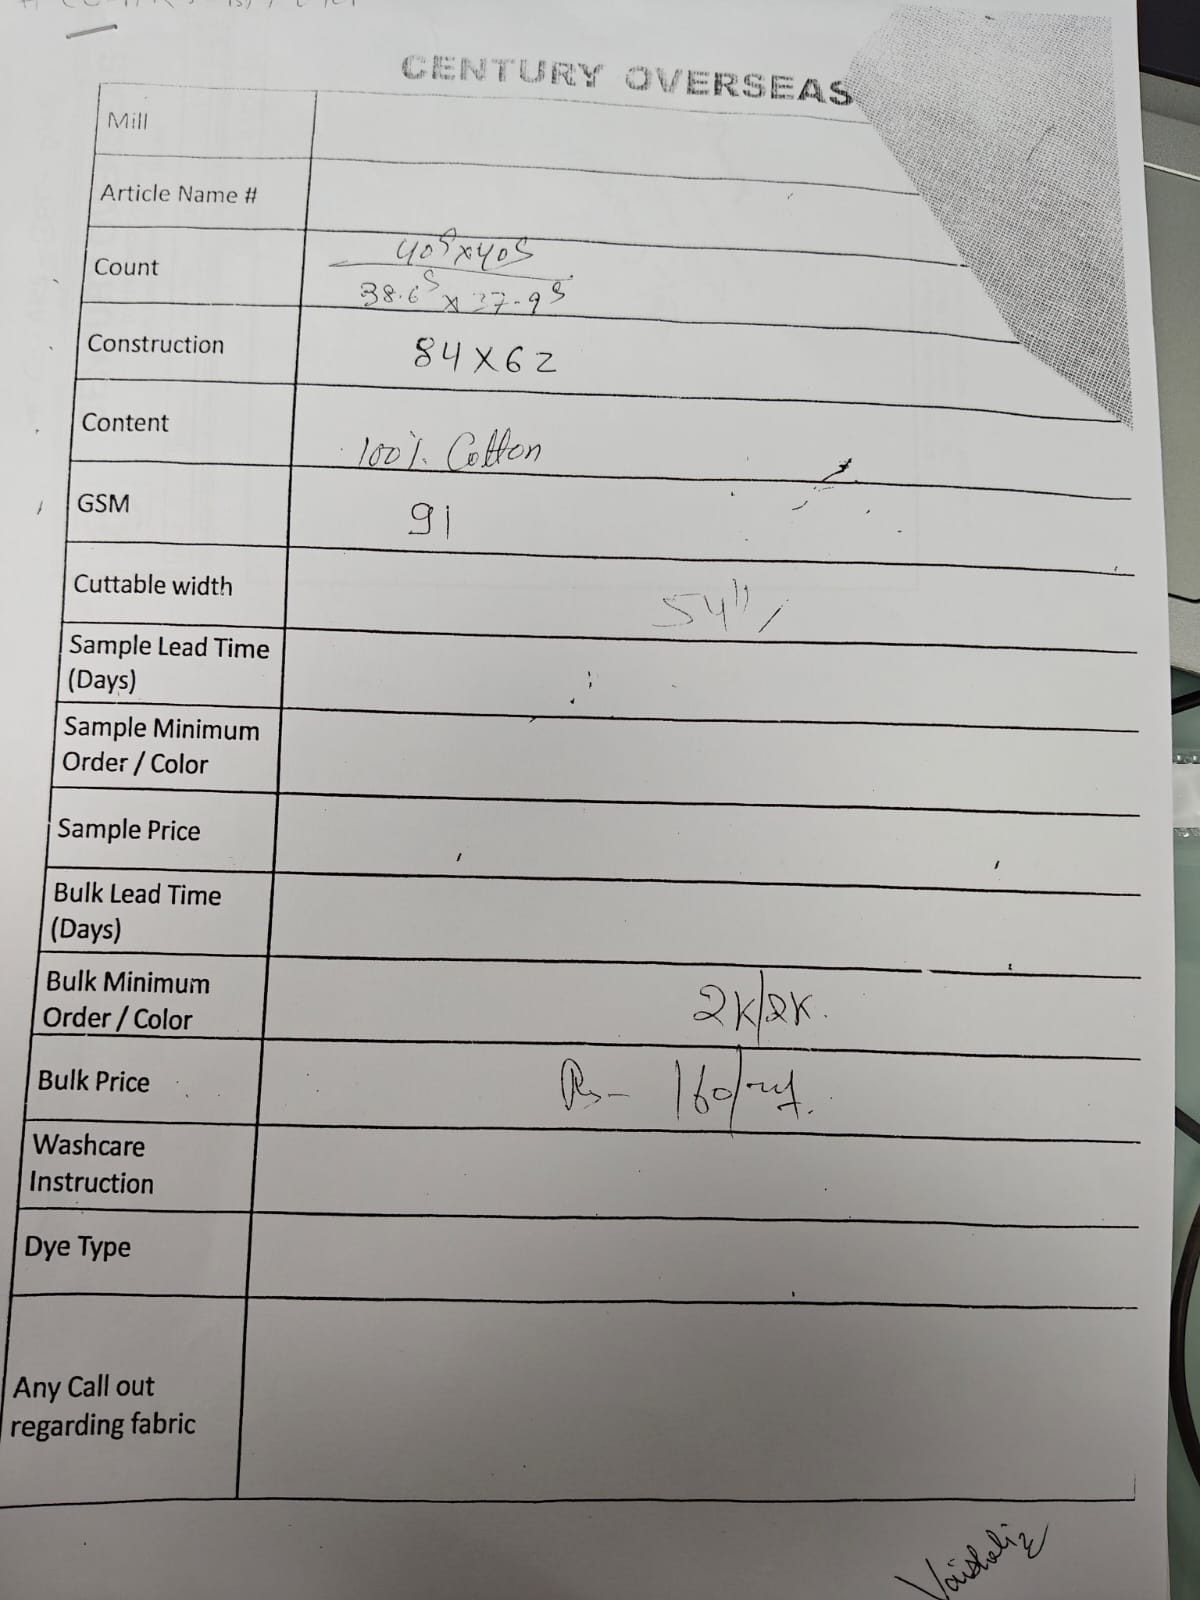 CENTURY OVERSEAS
Mill
Article Name #
Count
40sx40s
38.6s x 37.9s
Construction
84 X 62
Content
100% Cotton
GSM
91
Cuttable width
54"
Sample Lead Time
(Days)
Sample Minimum
Order / Color
Sample Price
Bulk Lead Time
(Days)
Bulk Minimum
Order / Color
2K/2K.
Bulk Price
Rs- 160/
Washcare
Instruction
Dye Type
Any Call out
regarding fabric
Vaishali